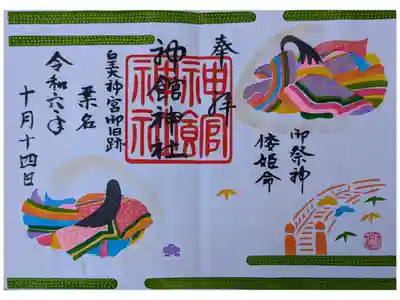 御祭神
倭姫命
奉拝
神館神社
神館
神社
皇大神宮御旧跡
桑名
令和六年
十月十四日